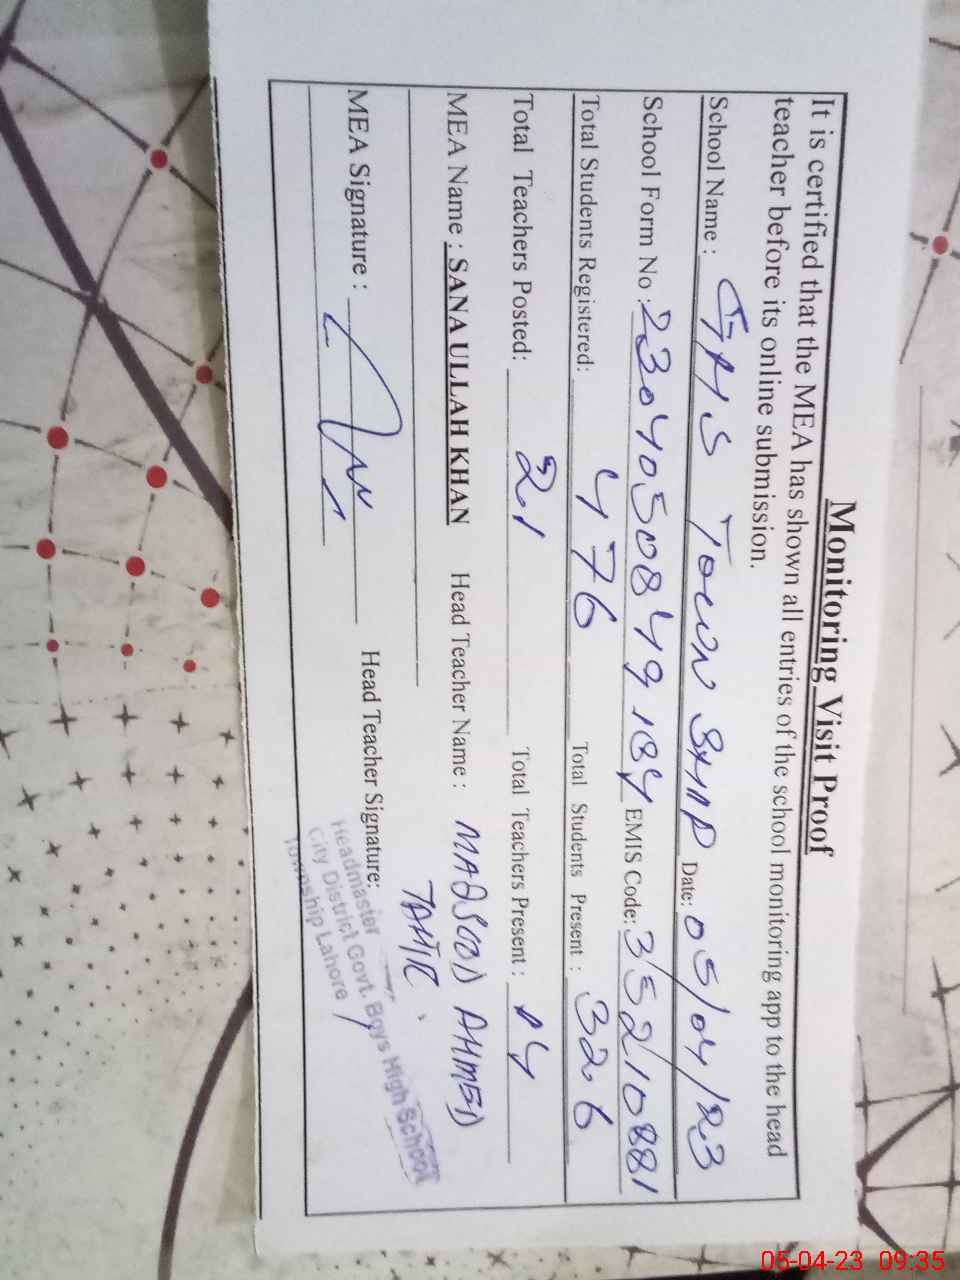 Monitoring Visit Proof
It is certified that the MEA has shown all entries of the school monitoring app to the head
teacher before its online submission.
School Name : GHS TOWN SHIP Date: 05/04/23
School Form No : 2304050849184 EMIS Code: 35210881
Total Students Registered: 476 Total Students Present : 326
Total Teachers Posted: 21 Total Teachers Present : 14
MEA Name : SANA ULLAH KHAN Head Teacher Name : MAQSOOD AHMED
TAHIR
MEA Signature : Head Teacher Signature:
Headmaster
City District Govt. Boys High School
Township Lahore
05-04-23 09:35